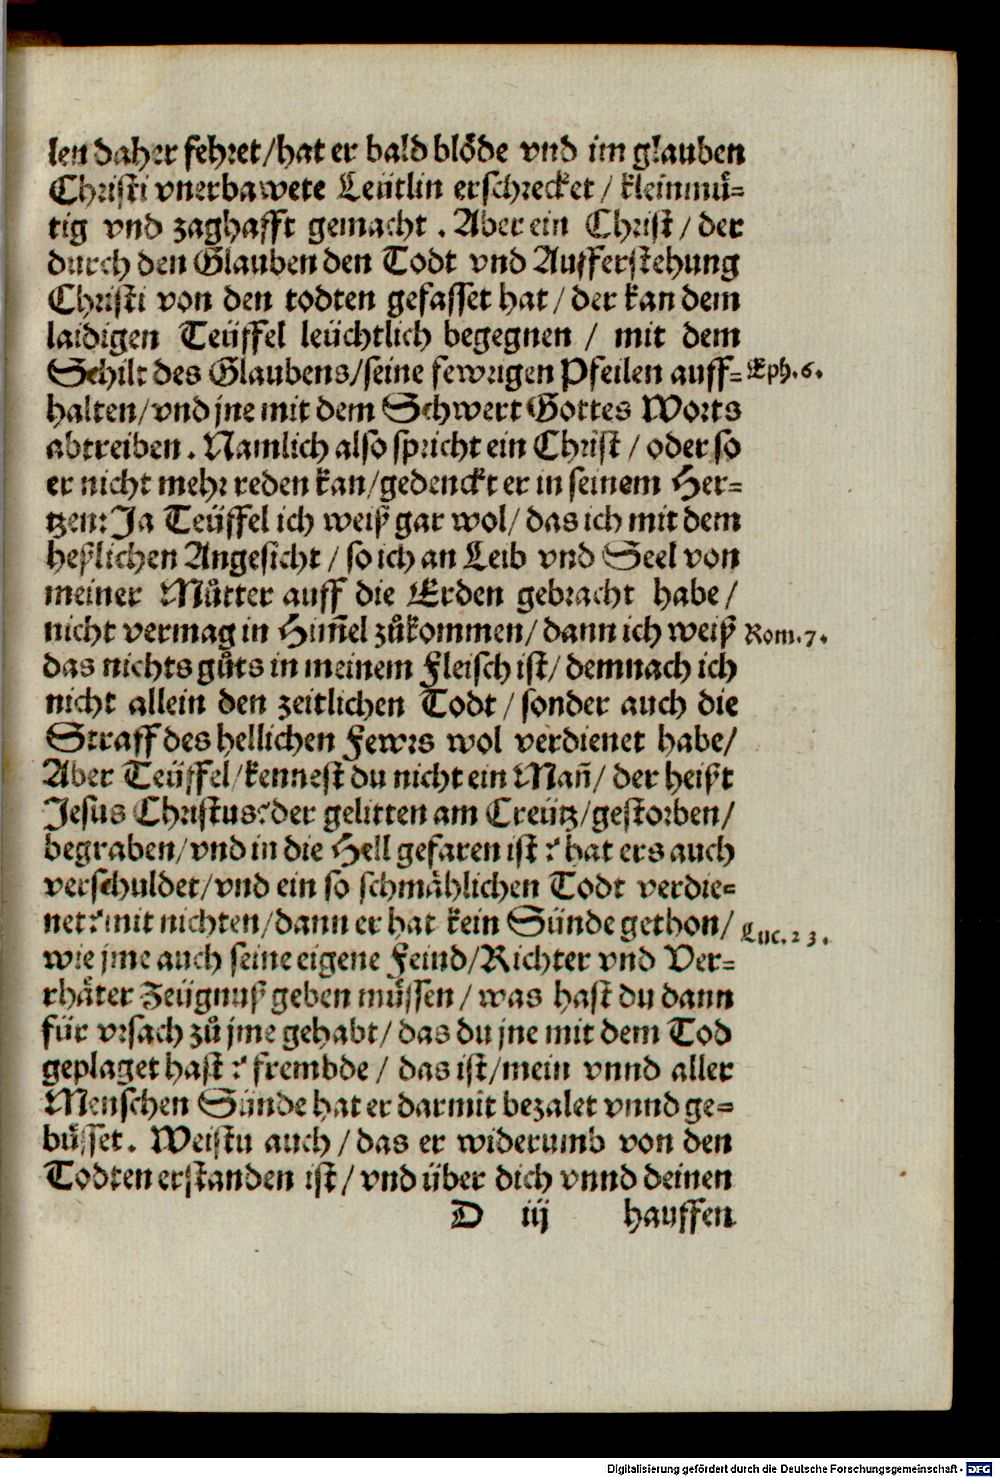 len daher fehret/hat er bald blöde vnd im glauben
Christi vnerbawete Leütlin erschrecket / kleinmuͤ-
tig vnd zaghafft gemacht . Aber ein Christ / der
durch den Glauben den Todt vnd Aufferstehung
Christi von den todten gefasset hat / der kan dem
laidigen Teüffel leüchtlich begegnen / mit dem
Schilt des Glaubens/seine fewrigen Pfeilen auff- Eph.6.
halten/vnd jne mit dem Schwert Gottes Worts
abtreiben . Namlich also spricht ein Christ / oder so
er nicht mehr reden kan/gedenckt er in seinem Her-
tzen: Ja Teüffel ich weiß gar wol/ das ich mit dem
heßlichen Angesicht / so ich an Leib vnd Seel von
meiner Muͦtter auff die Erden gebracht habe /
nicht vermag in Him̃el zuͦkommen/ dann ich weiß Rom.7.
das nichts guͦts in meinem Fleisch ist/ demnach ich
nicht allein den zeitlichen Todt / sonder auch die
Straff des hellichen Fewrs wol verdienet habe/
Aber Teüffel/kennest du nicht ein Mañ/ der heißt
Jesus Christus? der gelitten am Creütz/gestorben/
begraben/vnd in die Hell gefaren ist? hat ers auch
verschuldet/vnd ein so schmaͤhlichen Todt verdie-
net? mit nichten/dann er hat kein Sünde gethon/ Luc.23.
wie jme auch seine eigene Feind/Richter vnd Ver-
rhaͤter Zeügnuß geben muͤssen / was hast du dann
für vrsach zuͦ jme gehabt/ das du jne mit dem Tod
geplaget hast? frembde / das ist/mein vnnd aller
Menschen Sünde hat er darmit bezalet vnnd ge-
buͤsset . Weistu auch / das er widerumb von den
Todten erstanden ist / vnd über dich vnnd deinen
D iij hauffen
Digitalisierung gefördert durch die Deutsche Forschungsgemeinschaft - DFG